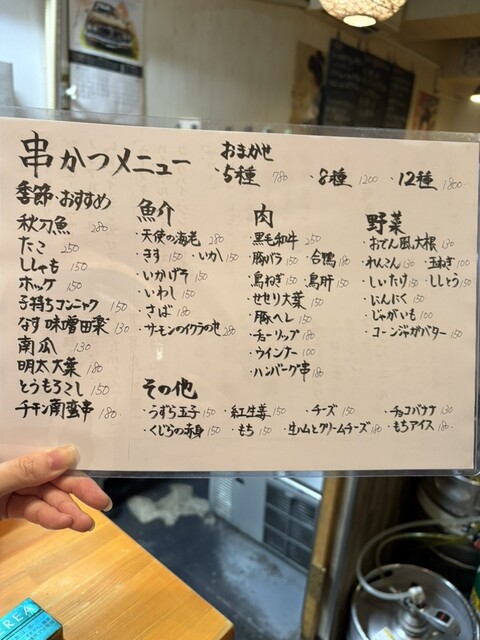 串かつメニュー
おまかせ
・5種 780 ・8種 1200 ・12種 1800
季節・おすすめ
秋刀魚 280
たこ 250
ししゃも 150
ホッケ 150
子持ちコンニャク 150
なす味噌田楽 130
南瓜 130
明太大葉 180
とうもろこし 150
チキン南蛮串 180
魚介
・天使の海老 280
・きす 150 ・いか 150
・いかげそ 150
・いわし 150
・さば 180
・サーモンのイクラのせ 280
肉
・黒毛和牛 250
・豚バラ 150 ・合鴨 180
・鳥ねぎ 150 ・鳥肝 150
・せせり大葉 150
・豚ヘレ 150
・チューリップ 180
・ウインナー 100
・ハンバーグ串 180
野菜
・おでん風大根 130
・れんこん 130 ・玉ねぎ 100
・しいたけ 150 ・ししとう 150
・にんにく 150
・じゃがいも 100
・コーンジャガバター 150
その他
・うずら玉子 150 ・紅生姜 150 ・チーズ 150 ・チョコバナナ 130
・くじらの赤身 150 ・もち 150 ・生ハムとクリームチーズ 180 ・もちアイス 180
REA